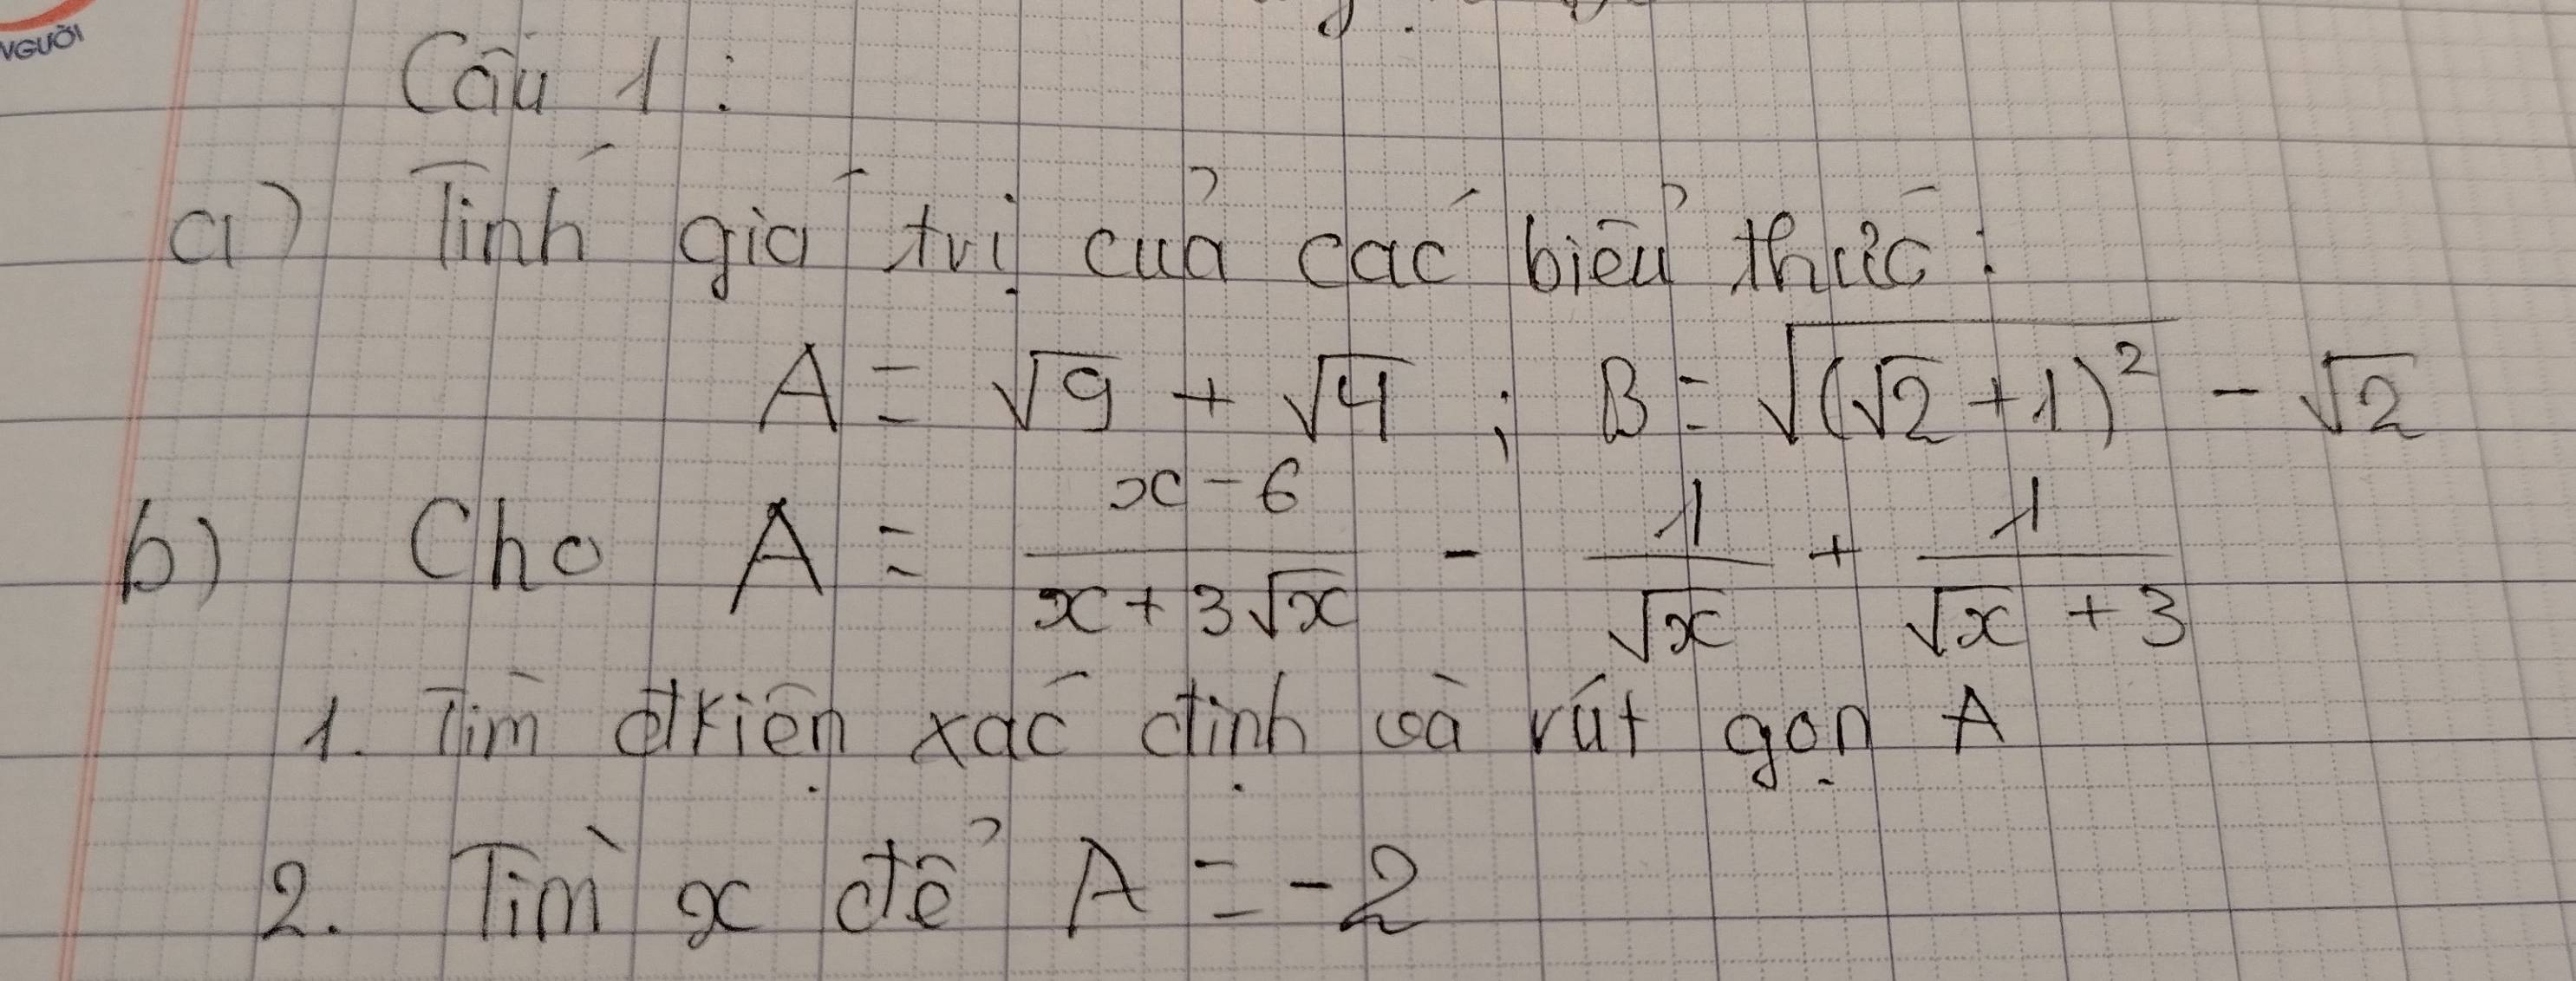 NGƯỜI
Câu 1 :
a) Tính giá trị của các biểu thức :
A = √9 + √4 ; B = √((√2 + 1)²) - √2
b) Cho A = (x - 6)/(x + 3√x) - 1/√x + 1/(√x + 3)
1. Tìm đkiện xác định và rút gọn A
2. Tìm x để A = -2